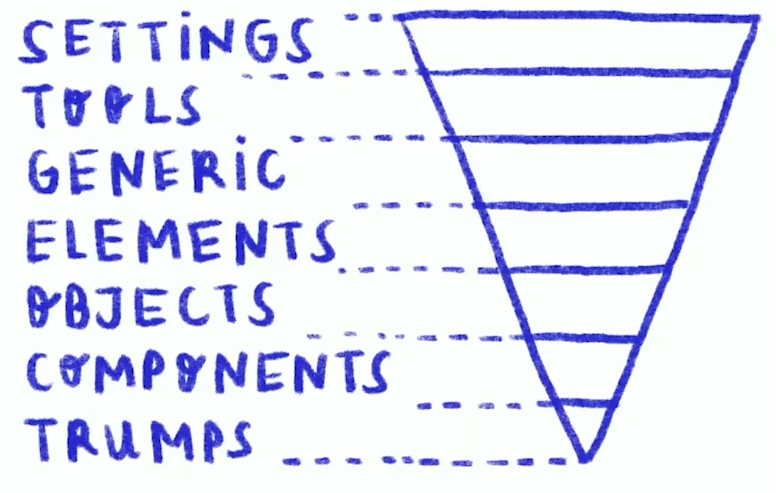 SETTINGS
TOOLS
GENERIC
ELEMENTS
OBJECTS
COMPONENTS
TRUMPS